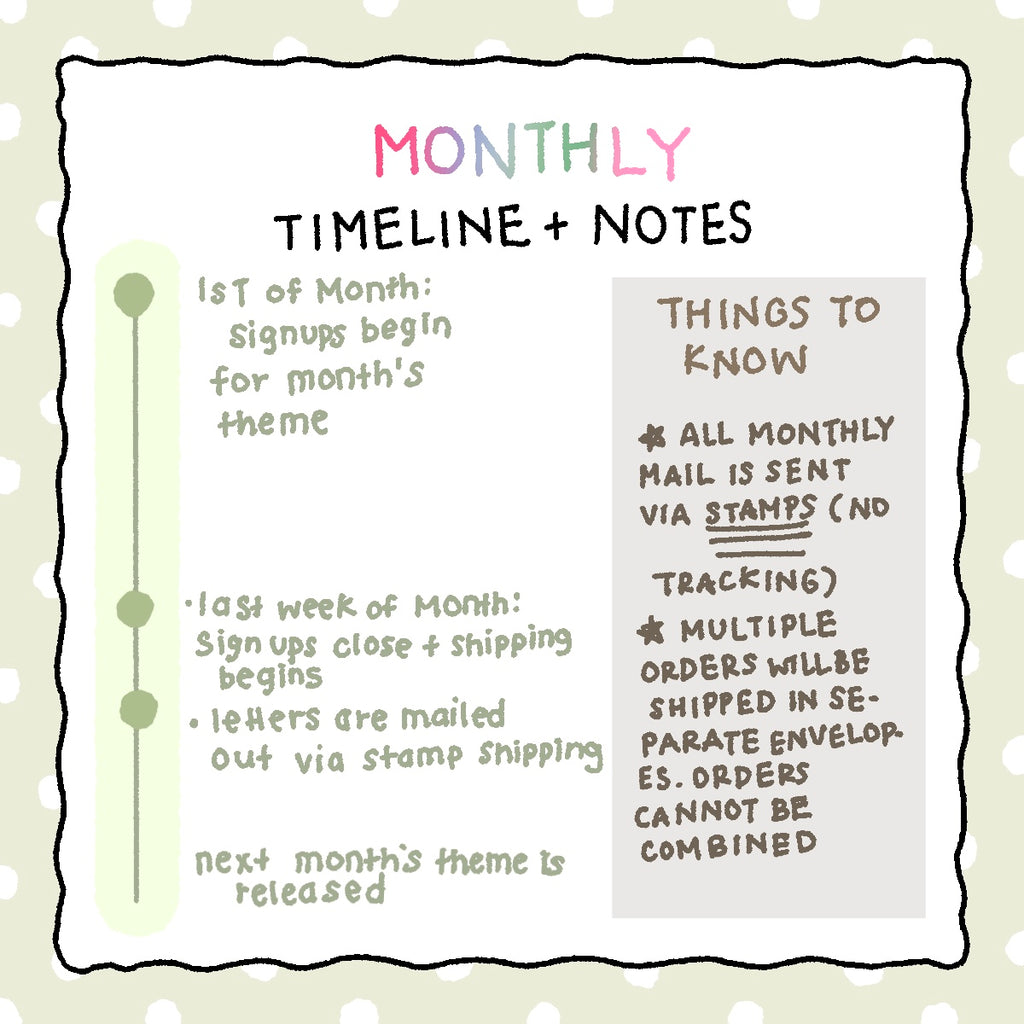 MONTHLY
TIMELINE + NOTES
1ST of Month:
Signups begin
for month's
theme
·last week of Month:
Sign ups close + shipping
begins
• letters are mailed
out via stamp shipping
next month's theme is
released
THINGS TO
KNOW
★ ALL MONTHLY
MAIL IS SENT
VIA STAMPS (NO
TRACKING)
★ MULTIPLE
ORDERS WILL BE
SHIPPED IN SE-
PARATE ENVELOP-
ES. ORDERS
CANNOT BE
COMBINED